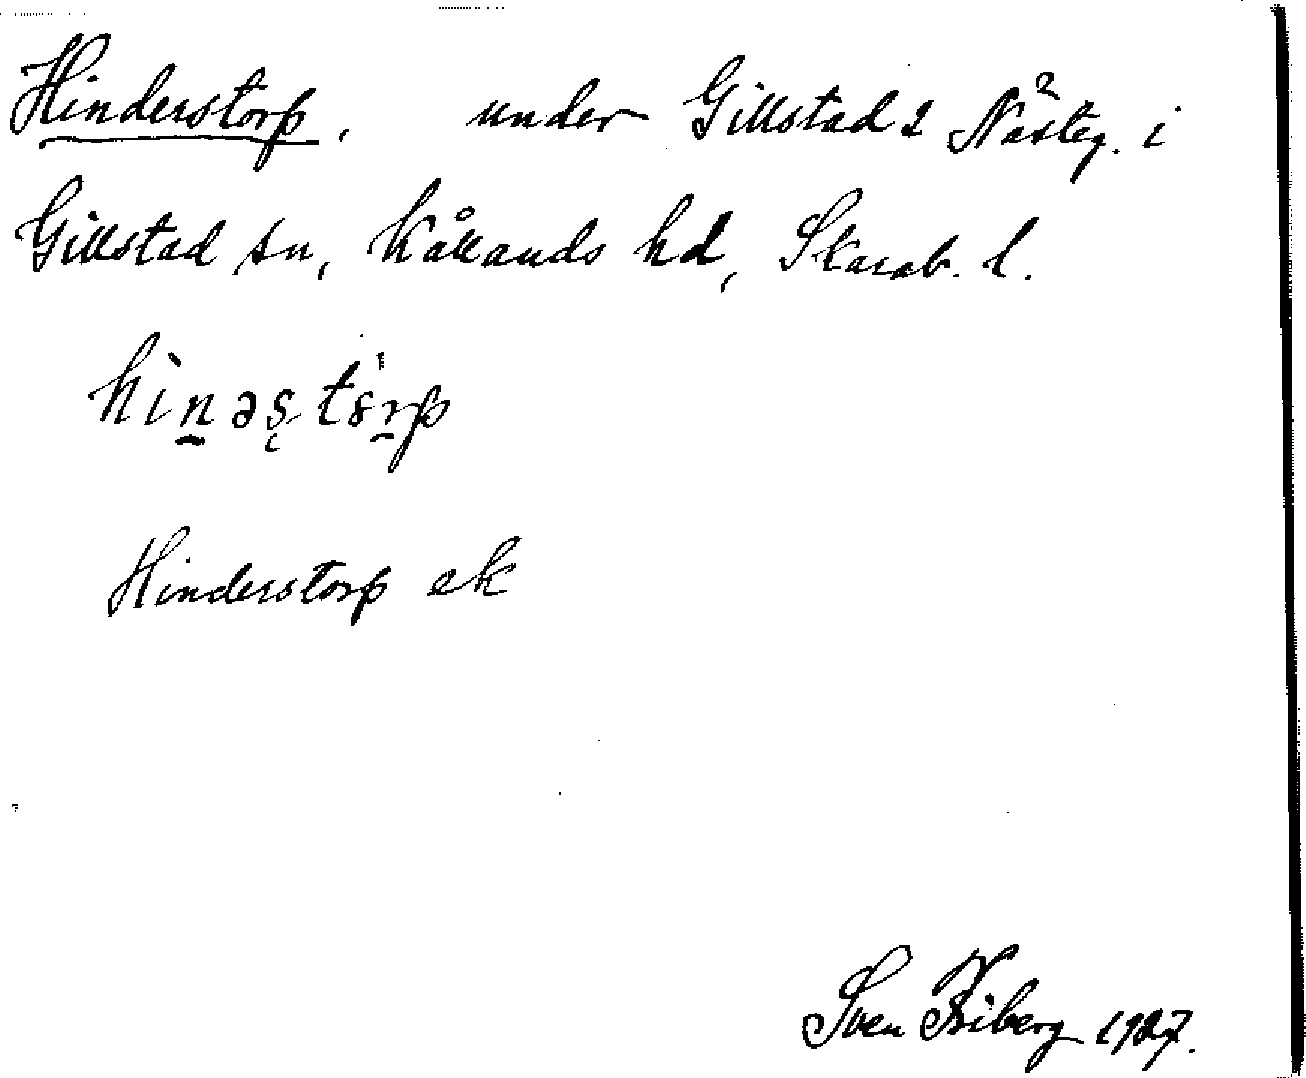 Hinderstorp, under Gillstad 2 Nästeg. i
Gillstad sn, Kållands hd, Skarab. l.
hìnəstòrp
Hinderstorp ek
Sven Friberg 1927.